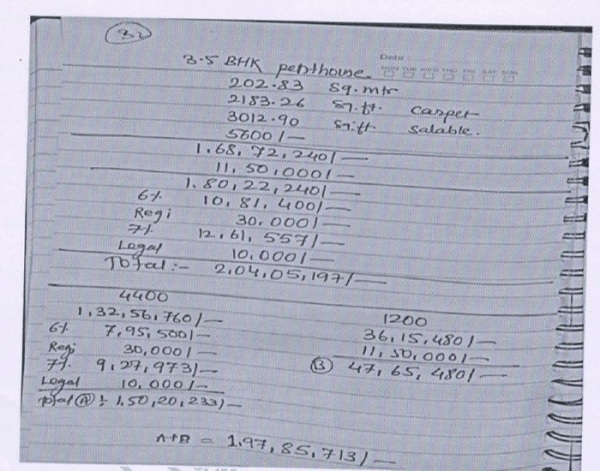 32
Date
MON TUE WED THU FRI SAT SUN
3.5 BHK penthouse.
202.83 Sq.mtr
2183.26 Sq.ft. carpet
3012.90 Sq.ft. salable.
5600/-
1,68,72,240/-
11,50,000/-
1,80,22,240/-
6% 10,81,400/-
Regi 30,000/-
7% 12,61,557/-
Legal 10,000/-
Total:- 2,04,05,197/-
4400
1,32,56,760/-
6% 7,95,500/-
Regi 30,000/-
7% 9,27,973/-
Legal 10,000/-
Total (A) :- 1,50,20,233/-
1200
36,15,480/-
11,50,000/-
(B) 47,65,480/-
A+B = 1,97,85,713/-